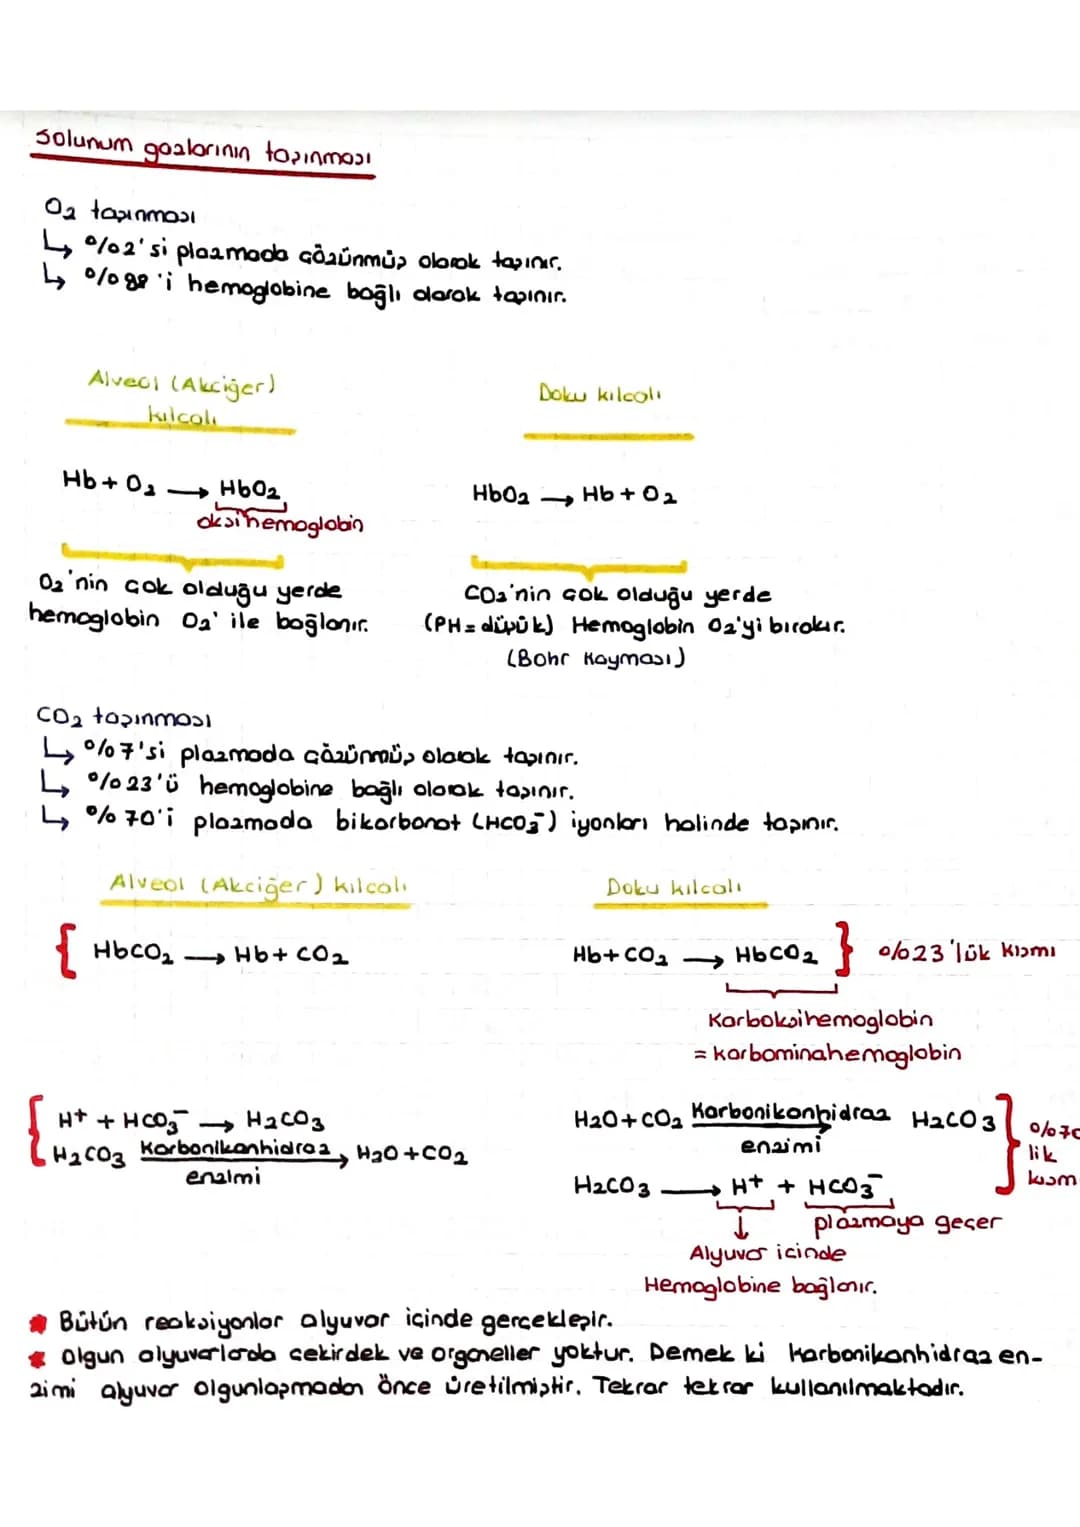 Solunum gazlarının taşınması
O₂ taşınması
↳ %2'si plazmada çözünmüş olarak taşınır.
↳ %98'i hemoglobine bağlı olarak taşınır.
Alveol (Akciğer)
kılcalı
Doku kılcalı
Hb + O₂ → HbO₂
oksihemoglobin
HbO₂ → Hb + O₂
O₂'nin çok olduğu yerde
hemoglobin O₂' ile bağlanır.
CO₂'nin çok olduğu yerde
(PH = düşük) Hemoglobin O₂'yi bırakır.
(Bohr Kayması)
CO₂ taşınması
↳ %7'si plazmada çözünmüş olarak taşınır.
↳ %23'ü hemoglobine bağlı olarak taşınır.
↳ %70'i plazmada bikarbonat (HCO₃⁻) iyonları halinde taşınır.
Alveol (Akciğer) kılcalı
Doku kılcalı
{ HbCO₂ → Hb + CO₂
Hb + CO₂ → HbCO₂ } %23'lük kısmı
Karboksihemoglobin
= karbominahemoglobin
{ H⁺ + HCO₃⁻ → H₂CO₃
H₂CO₃ Karbonikanhidraz → H₂O + CO₂
enzimi
H₂O + CO₂ Karbonikanhidraz → H₂CO₃
enzimi
H₂CO₃ → H⁺ + HCO₃⁻
%70
lik
kısm
plazmaya geçer
↓
Alyuvar içinde
Hemoglobine bağlanır.
* Bütün reaksiyonlar alyuvar içinde gerçekleşir.
* Olgun alyuvarlarda çekirdek ve organeller yoktur. Demek ki karbonikanhidraz en-
zimi alyuvar olgunlaşmadan önce üretilmiştir. Tekrar tekrar kullanılmaktadır.